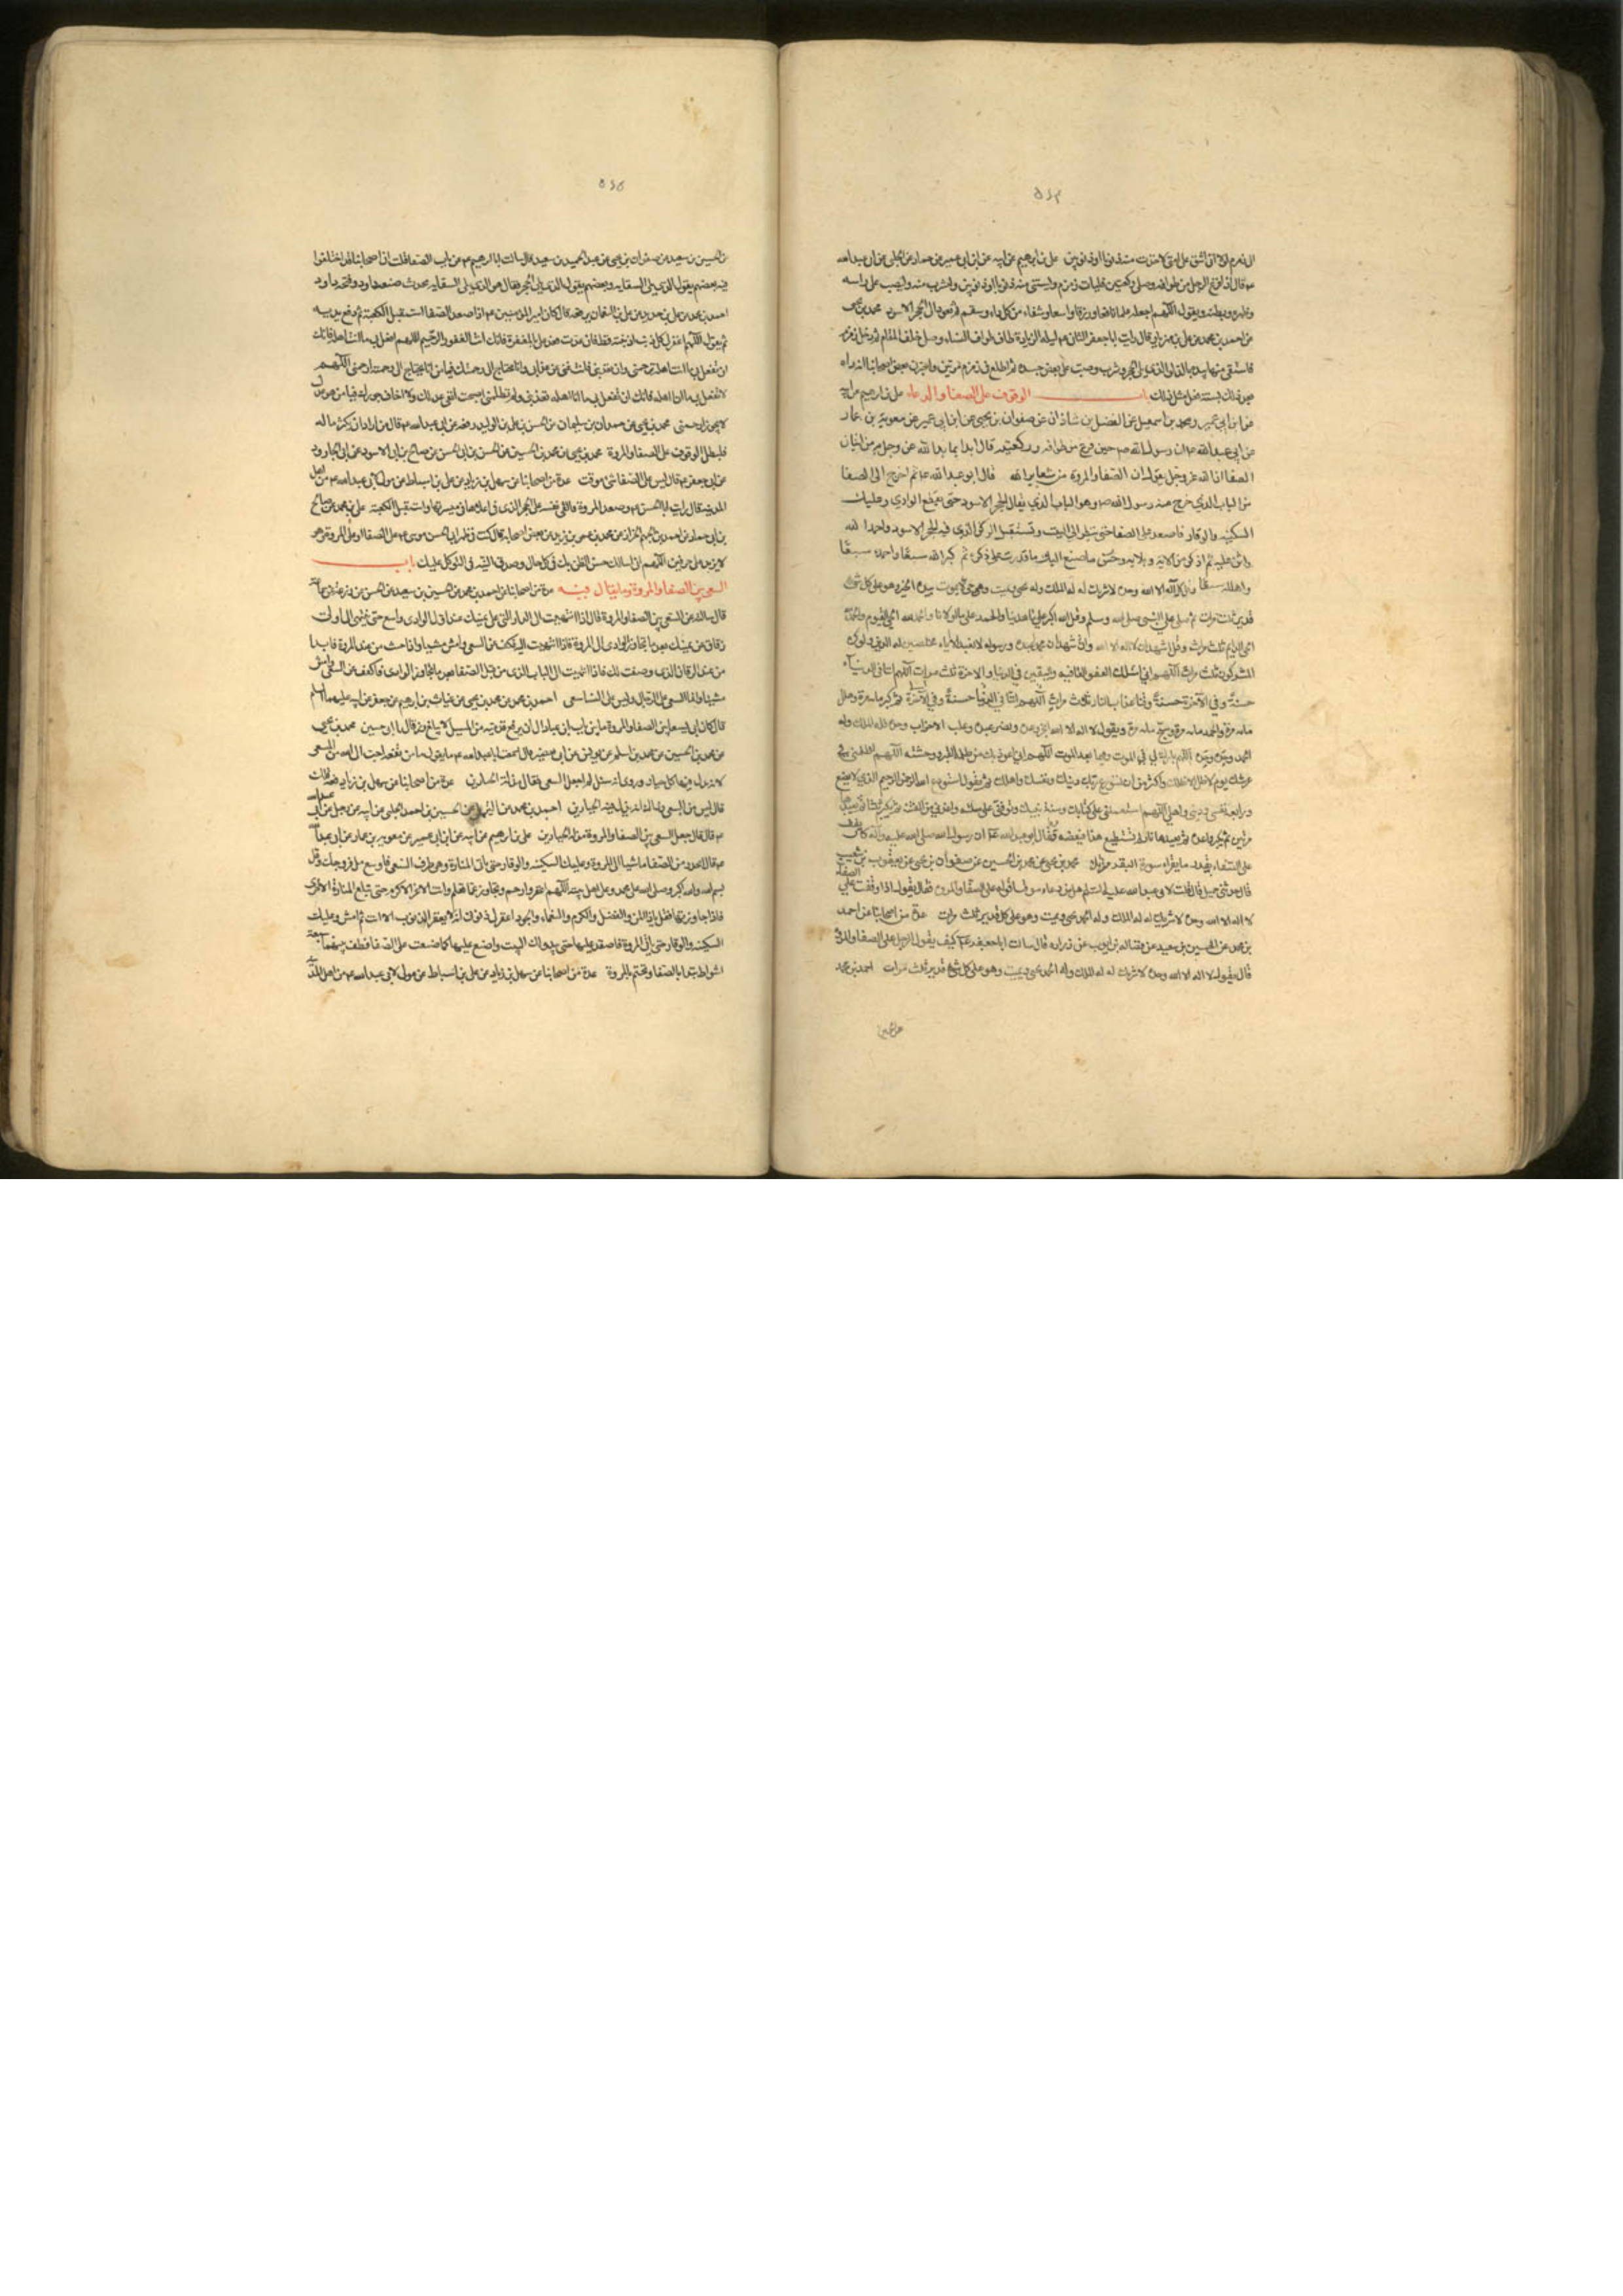 ۵۶۴
الى زمزم لولا ان اشق على امتى لاخذت منه ذنوبا او ذنوبين على بن ابرهيم عن ابيه عن ابن ابى عمير عن حماد عن الحلبى عن ابى عبد الله
قال اذا فرغ الرجل من طوافه وصلى ركعتين فليات زمزم وليستق منه ذنوبا او ذنوبين وليشرب منه وليصب على راسه
وظهره وبطنه ويقول اللهم اجعله علما نافعا ورزقا واسعا وشفاء من كل داء وسقم ثم يعود الى الحجر الاسود محمد بن يحيى
عن احمد بن محمد عن على بن مهزيار قال رايت ابا جعفر الثانى ليلة الزيارة طاف طواف النساء وصلى خلف المقام ثم دخل زمزم
فاستقى منها بيده بالدلو الذى يلى الحجر وشرب وصب على بعض جسده ثم اطلع فى زمزم مرتين واخبرنى بعض اصحابنا انه راه
بعد ذلك بسنة فعل مثل ذلك باب الوقوف على الصفا والدعاء على بن ابرهيم عن ابيه
عن ابن ابى عمير ومحمد بن اسمعيل عن الفضل بن شاذان عن صفوان بن يحيى عن ابن ابى عمير عن معوية بن عمار
عن ابى عبد الله ان رسول الله حين فرغ من طوافه وركعتيه قال ابدا بما بدا الله عز وجل به من اتيان
الصفا ان الله عز وجل يقول ان الصفا والمروة من شعاير الله قال ابو عبد الله ثم اخرج الى الصفا
من الباب الذى خرج منه رسول الله وهو الباب الذى يقابل الحجر الاسود حتى تقطع الوادى وعليك
السكينة والوقار فاصعد على الصفا حتى تنظر الى البيت وتستقبل الركن الذى فيه الحجر الاسود واحمد الله
واثن عليه ثم اذكر من الائه وبلائه وحسن ما صنع اليك ما قدرت على ذكره ثم كبر الله سبعا واحمده سبعا
وهلله سبعا وقل لا اله الا الله وحده لا شريك له له الملك وله يحيى ويميت وهو حى لا يموت بيده الخير وهو على كل شئ
قدير ثلث مرات ثم صلى على النبى صلى الله وسلم وقل الله اكبر على ما هدينا والحمد على ما اولانا والحمد لله الحى القيوم والحمد
الحى الدايم ثلث مرات وقل اشهد ان لا اله الا الله واشهد ان محمدا عبده ورسوله لا نعبد الا اياه مخلصين له الدين ولو كره
المشركون ثلث مرات اللهم انى اسئلك العفو والعافية واليقين فى الدنيا والاخرة ثلث مرات اللهم اتنا فى الدنيا
حسنة وفى الآخرة حسنة وقنا عذاب النار ثلاث مرات ثم كبر ماية مرة وهلل
ماية مرة واحمد ماية مرة وسبح ماية مرة ويقول لا اله الا الله انجز وعده ونصر عبده وغلب الاحزاب وحده فله الملك وله
الحمد وحده وحده اللهم بارك لى فى الموت وفيما بعد الموت اللهم انى اعوذ بك من ظلمة القبر ووحشته اللهم اظلنى فى
عرشك يوم لا ظل الا ظلك واكثر من ان تستودع ربك دينك ونفسك واهلك ثم تقول استودع الله الرحمن الرحيم الذى لا يضيع
ودايعه نفسى ودينى واهلى اللهم استعملنى على كتابك وسنة نبيك وتوفنى على ملته واعذنى من الفتنة ثم تكبر ثلثا ثم تعيدها
مرتين ثم تكبر واحدة ثم تعيدها فان لم تستطع هذا فبعضه فقال ابو عبد الله ان رسول الله صلى الله عليه وآله كان يقف
على الصفا بقدر ما يقرا سورة البقرة مرتلا محمد بن يحيى عن محمد بن الحسين عن صفوان بن يحيى عن يعقوب بن شعيب
قال حدثنى جميل قال قلت لابى عبد الله عليه السلام هل من دعاء موقت اقوله على الصفا والمروة فقال يقول اذا وقفت على الصفا
لا اله الا الله وحده لا شريك له له الملك وله الحمد يحيى ويميت وهو على كل قدير ثلث مرات عدة من اصحابنا عن احمد
بن محمد عن الحسين بن سعيد عن فضالة بن ايوب عن زرارة قال سالت ابا جعفر كيف يقول الرجل على الصفا والمروة
قال يقول لا اله الا الله وحده لا شريك له له الملك وله الحمد يحيى ويميت وهو على كل شئ قدير ثلث مرات احمد بن محمد
عن الحسين
۵۶۵
عن الحسين بن سعيد عن صفوان بن يحيى عن عبد الحميد بن سعيد قال سالت ابا ابرهيم عن باب الصفا قلت ان اصحابنا قد اختلفوا
فيه بعضهم يقول الذى يلى السقاية وبعضهم يقول الذى يلى الحجر فقال هو الذى يلى السقاية محدث صنعه داود وفتحه داود
احمد بن محمد عن على بن حديد عن على بن النعمان يرفعه قال كان امير المؤمنين اذا صعد الصفا استقبل الكعبة ثم رفع يديه
ثم يقول اللهم اغفر لى كل ذنب اذنبته قط فان عدت فعد على بالمغفرة فانك انت الغفور الرحيم اللهم افعل بى ما انت اهله فانك
ان تفعل بى ما انت اهله ترحمنى وان تعذبنى فانت غنى عن عذابى وانا محتاج الى رحمتك فيا من انا محتاج الى رحمته ارحمنى اللهم
لا تفعل بى ما انا اهله فانك ان تفعل بى ما انا اهله تعذبنى ولم تظلمنى اصبحت اتقى عدلك ولا اخاف جورك فيا من هو عدل
لا يجور ارحمنى محمد بن يحيى عن حمدان بن سليمان عن الحسن بن على بن الوليد رفعه عن ابى عبد الله قال من اراد ان يكثر ماله
فليطل الوقوف على الصفا والمروة محمد بن يحيى عن محمد بن الحسين عن الحسن بن ابى الحسن عن صالح بن ابى الاسود عن ابى الجارود
عن ابى جعفر قال ليس على الصفا شئ موقت عدة من اصحابنا عن سهل بن زياد عن على بن اسباط عن مولى لابى عبد الله من اهل
المدينة قال رايت ابا الحسن صعد المروة فالقى نفسه على الحجر الذى فى اعلاها فى ميسرتها واستقبل الكعبة على بن محمد عن صالح
بن ابى حماد عن احمد بن الجهم الخزاز عن محمد بن عمر بن يزيد عن بعض اصحابه قال كنت فى ظهر ابى الحسن موسى على الصفا او على المروة وهو
لا يزيد على حرفين اللهم انى اسالك حسن الظن بك فى كل حال وصدق النية فى التوكل عليك باب
السعى بين الصفا والمروة وما يقال فيه عدة من اصحابنا عن احمد بن محمد عن الحسين بن سعيد عن الحسن عن زرعة عن سماعة
قال سالته عن السعى بين الصفا والمروة قال اذا انتهيت الى الدار التى على يمينك عند اول الوادى فاسع حتى تنتهى الى اول
زقاق عن يمينك بعد ما تجاوز الوادى الى المروة فاذا انتهيت اليه فكف عن السعى وامش مشيا واذا جئت من عند المروة فابدا
من عند الزقاق الذى وصفت لك فاذا انتهيت الى الباب الذى من قبل الصفا بعد ما تجاوز الوادى فاكفف عن السعى وامش
مشيا وانما السعى على الرجال وليس على النساء سعى احمد بن محمد عن محمد بن يحيى عن غياث بن ابرهيم عن جعفر عن ابيه عليهما السلام
قال كان ابى يسعى بين الصفا والمروة ما بين باب ابن عباد الى ان يرفع قدميه من المسيل لا يبلغ زقاق ال ابى حسين محمد بن يحيى
عن محمد بن الحسين عن محمد بن اسلم عن يونس عن ابى بصير قال سمعت ابا عبد الله يقول ما من بقعة احب الى الله من المسعى
لانه يذل فيها كل جبار وروى انه سئل لم جعل السعى فقال مذلة للجبارين عدة من اصحابنا عن سهل بن زياد رفعه
قال ليس من السعى
قال قال جعل السعى بين الصفا والمروة مذلة للجبارين على بن ابرهيم عن ابيه عن ابن ابى عمير عن معوية بن عمار عن ابى عبد الله
قال انحدر من الصفا ماشيا الى المروة وعليك السكينة والوقار حتى تاتى المنارة وهى طرف المسعى فاسع ملأ فروجك وقل
بسم الله والله اكبر وصلى الله على محمد وعلى اهل بيته اللهم اغفر وارحم وتجاوز عما تعلم وانت الاعز الاكرم حتى تبلغ المنارة الاخرى
فاذا جاوزتها فقل يا ذا المن والفضل والكرم والنعماء والجود اغفر لى ذنوبى انه لا يغفر الذنوب الا انت ثم امش وعليك
السكينة والوقار حتى تاتى المروة فاصعد عليها حتى يبدو لك البيت واصنع عليها كما صنعت على الصفا وطف بينهما سبعة
اشواط تبدا بالصفا وتختم بالمروة عدة من اصحابنا عن سهل بن زياد عن على بن اسباط عن مولى لابى عبد الله من اهل المدينة